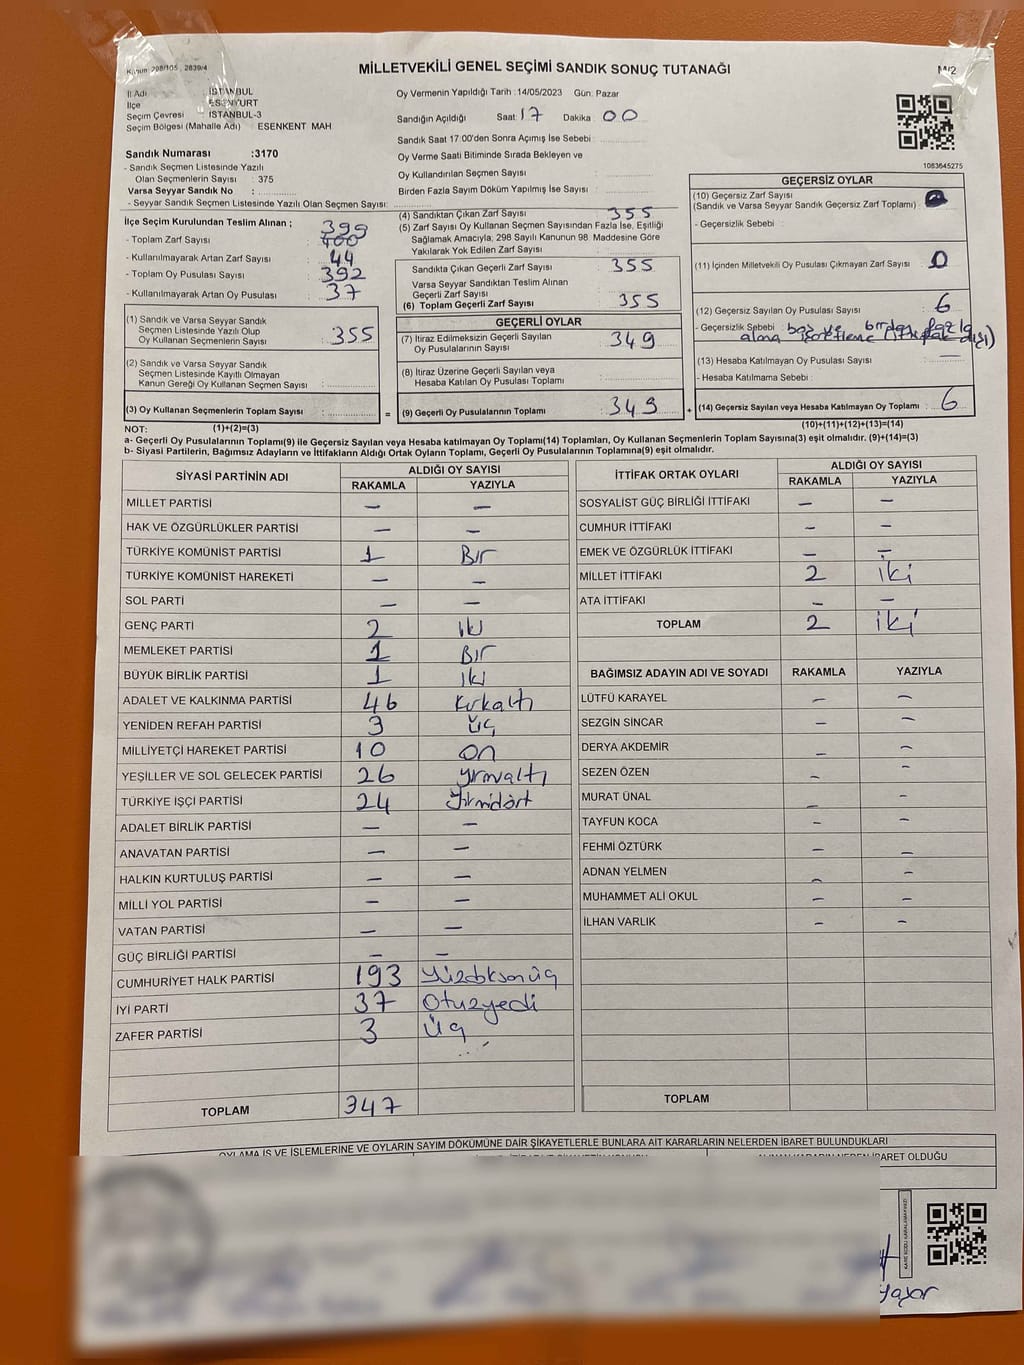 Kanun: 298/105, 2839/4
MİLLETVEKİLİ GENEL SEÇİMİ SANDIK SONUÇ TUTANAĞI
M/2
İl Adı : İSTANBUL
İlçe : ESENYURT
Seçim Çevresi : İSTANBUL-3
Seçim Bölgesi (Mahalle Adı) : ESENKENT MAH
Sandık Numarası :3170
- Sandık Seçmen Listesinde Yazılı
Olan Seçmenlerin Sayısı : 375
Varsa Seyyar Sandık No :
- Seyyar Sandık Seçmen Listesinde Yazılı Olan Seçmen Sayısı:
Oy Vermenin Yapıldığı Tarih :14/05/2023 Gün: Pazar
Sandığın Açıldığı Saat: 17 Dakika 00
Sandık Saat 17:00'den Sonra Açımış İse Sebebi :
Oy Verme Saati Bitiminde Sırada Bekleyen ve
Oy Kullandırılan Seçmen Sayısı :
Birden Fazla Sayım Döküm Yapılmış İse Sayısı :
1083645275
İlçe Seçim Kurulundan Teslim Alınan ;
399
- Toplam Zarf Sayısı : 400
- Kullanılmayarak Artan Zarf Sayısı : 44
- Toplam Oy Pusulası Sayısı : 392
- Kullanılmayarak Artan Oy Pusulası : 37
(1) Sandık ve Varsa Seyyar Sandık
Seçmen Listesinde Yazılı Olup
Oy Kullanan Seçmenlerin Sayısı : 355
(2) Sandık ve Varsa Seyyar Sandık
Seçmen Listesinde Kayıtlı Olmayan
Kanun Gereği Oy Kullanan Seçmen Sayısı :
(3) Oy Kullanan Seçmenlerin Toplam Sayısı :
=
(4) Sandıktan Çıkan Zarf Sayısı : 355
(5) Zarf Sayısı Oy Kullanan Seçmen Sayısından Fazla İse, Eşitliği
Sağlamak Amacıyla, 298 Sayılı Kanunun 98. Maddesine Göre
Yakılarak Yok Edilen Zarf Sayısı :
Sandıkta Çıkan Geçerli Zarf Sayısı : 355
Varsa Seyyar Sandıktan Teslim Alınan
Geçerli Zarf Sayısı :
(6) Toplam Geçerli Zarf Sayısı : 355
GEÇERLİ OYLAR
(7) İtiraz Edilmeksizin Geçerli Sayılan
Oy Pusulalarının Sayısı : 349
(8) İtiraz Üzerine Geçerli Sayılan veya
Hesaba Katılan Oy Pusulası Toplamı :
(9) Geçerli Oy Pusulalarının Toplamı : 349
+
GEÇERSİZ OYLAR
(10) Geçersiz Zarf Sayısı
(Sandık ve Varsa Seyyar Sandık Geçersiz Zarf Toplamı) :
- Geçersizlik Sebebi :
(11) İçinden Milletvekili Oy Pusulası Çıkmayan Zarf Sayısı : 0
(12) Geçersiz Sayılan Oy Pusulası Sayısı : 6
- Geçersizlik Sebebi : boş ve birden fazla
alana işaretleme (ittifak dışı)
(13) Hesaba Katılmayan Oy Pusulası Sayısı : —
- Hesaba Katılmama Sebebi :
(14) Geçersiz Sayılan veya Hesaba Katılmayan Oy Toplamı : 6
NOT: (1)+(2)=(3)
(10)+(11)+(12)+(13)=(14)
a- Geçerli Oy Pusulalarının Toplamı(9) ile Geçersiz Sayılan veya Hesaba katılmayan Oy Toplamı(14) Toplamları, Oy Kullanan Seçmenlerin Toplam Sayısına(3) eşit olmalıdır. (9)+(14)=(3)
b- Siyasi Partilerin, Bağımsız Adayların ve İttifakların Aldığı Ortak Oyların Toplamı, Geçerli Oy Pusulalarının Toplamına(9) eşit olmalıdır.
SİYASİ PARTİNİN ADI ALDIĞI OY SAYISI
RAKAMLA YAZIYLA
MİLLET PARTİSİ — —
HAK VE ÖZGÜRLÜKLER PARTİSİ — —
TÜRKİYE KOMÜNİST PARTİSİ 1 Bir
TÜRKİYE KOMÜNİST HAREKETİ — —
SOL PARTİ — —
GENÇ PARTİ 2 iki
MEMLEKET PARTİSİ 1 Bir
BÜYÜK BİRLİK PARTİSİ 1 iki
ADALET VE KALKINMA PARTİSİ 46 Kırkaltı
YENİDEN REFAH PARTİSİ 3 üç
MİLLİYETÇİ HAREKET PARTİSİ 10 on
YEŞİLLER VE SOL GELECEK PARTİSİ 26 yirmialtı
TÜRKİYE İŞÇİ PARTİSİ 24 Yirmidört
ADALET BİRLİK PARTİSİ — —
ANAVATAN PARTİSİ — —
HALKIN KURTULUŞ PARTİSİ — —
MİLLİ YOL PARTİSİ — —
VATAN PARTİSİ — —
GÜÇ BİRLİĞİ PARTİSİ — —
CUMHURİYET HALK PARTİSİ 193 Yüzdoksanüç
İYİ PARTİ 37 Otuzyedi
ZAFER PARTİSİ 3 Üç
TOPLAM 347
İTTİFAK ORTAK OYLARI ALDIĞI OY SAYISI
RAKAMLA YAZIYLA
SOSYALİST GÜÇ BİRLİĞİ İTTİFAKI — —
CUMHUR İTTİFAKI — —
EMEK VE ÖZGÜRLÜK İTTİFAKI — —
MİLLET İTTİFAKI 2 iki
ATA İTTİFAKI — —
TOPLAM 2 iki
BAĞIMSIZ ADAYIN ADI VE SOYADI RAKAMLA YAZIYLA
LÜTFÜ KARAYEL — —
SEZGİN SİNCAR — —
DERYA AKDEMİR — —
SEZEN ÖZEN — —
MURAT ÜNAL — —
TAYFUN KOCA — —
FEHMİ ÖZTÜRK — —
ADNAN YELMEN — —
MUHAMMET ALİ OKUL — —
İLHAN VARLIK — —
TOPLAM
OYLAMA İŞ VE İŞLEMLERİNE VE OYLARIN SAYIM DÖKÜMÜNE DAİR ŞİKAYETLERLE BUNLARA AİT KARARLARIN NELERDEN İBARET BULUNDUKLARI
ALINAN KARARIN NEDEN İBARET OLDUĞU
KARE KODU KARALAMAYINIZ!
Yaşar